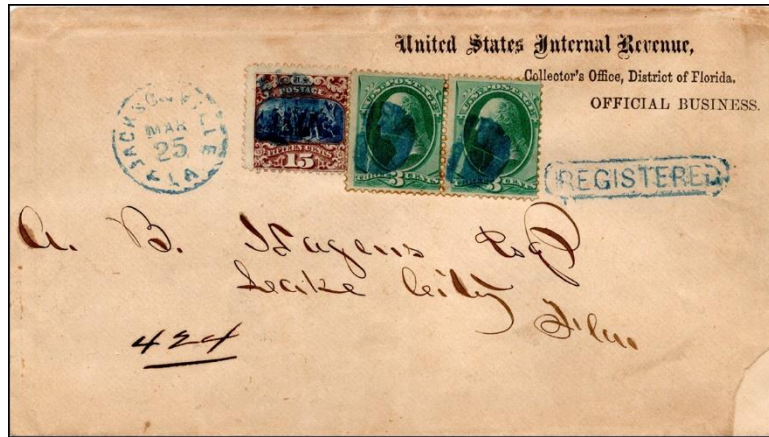 United States Internal Revenue,
Collector's Office, District of Florida.
OFFICIAL BUSINESS.
JACKSONVILLE
MAR
25
FLA
U.S.
POSTAGE
FIFTEEN CENTS
15
U.S. POSTAGE
THREE CENTS
3
U.S. POSTAGE
THREE CENTS
3
REGISTERED
A. B. Hagens Esq
Lake City
Fla
424